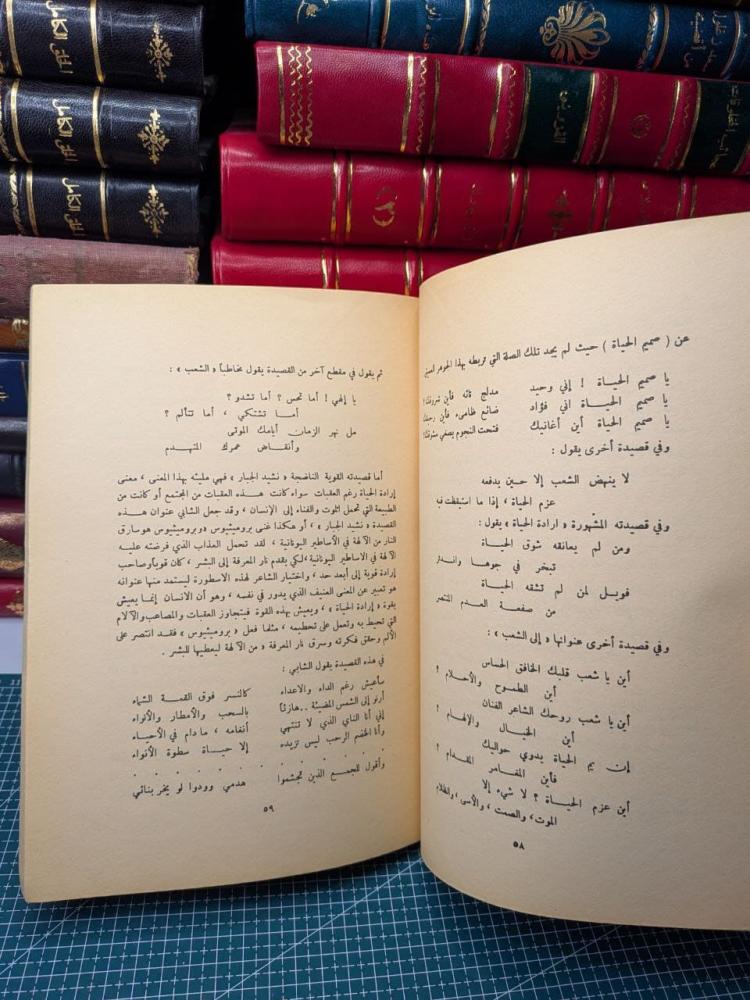 الحلي الكامل
الحلي الكامل
الحلي الكامل
٢
عن ( صميم الحياة ) حيث لم يجد تلك الصلة التي تربطه بهذا الجوهر
يا صميم الحياة ! إني وحيد مدلج تائه فأين شروقك
يا صميم الحياة اني فؤاد ضائع ظامىء فأين رحيقك
يا صميم الحياة أين أغانيك فتحت النجوم يصغي مشوقك
وفي قصيدة أخرى يقول :
لا ينهض الشعب إلا حين يدفعه
عزم الحياة ، إذا ما استيقظت فيه
وفي قصيدته المشهورة « ارادة الحياة » يقول :
ومن لم يعانقه شوق الحياة
تبخر في جوها واندثر
فويل لمن لم تشقه الحياة
من صفعة العدم المنتصر
وفي قصيدة أخرى عنوانها « إلى الشعب » :
أين يا شعب قلبك الخافق الحساس
أين الطموح والأحلام ؟
أين يا شعب روحك الشاعر الفنان
أين الخيال والإلهام ؟
إن يم الحياة يدوي حواليك
فأين المغامر المقدام ؟
أين عزم الحياة ؟ لا شيء إلا
الموت، والصمت ، والأسى، والظلام
٥٨
ثم يقول في مقطع آخر من القصيدة يقول مخاطباً « الشعب » :
يا إلهي ! أما تحس ؟ أما تشدو ؟
أما تشتكي ، أما تتألم ؟
مل نهر الزمان أيامك الموتى
وأنقاض عمرك المتهدم
أما قصيدته القوية الناضجة « نشيد الجبار » فهي مليئه بهذا المعنى ، معنى
إرادة الحياة رغم العقبات سواء كانت هذه العقبات من المجتمع أو كانت من
الطبيعة التي تحمل الموت والفناء إلى الإنسان ، وقد جعل الشابي عنوان هذه
القصيدة « نشيد الجبار » ، أو هكذا غنى بروميثيوس « وبروميثيوس هو سارق
النار من الآلهة في الأساطير اليونانية ، لقد تحمل العذاب الذي فرضته عليه
الآلهة في الاساطير اليونانية ،لكي يقدم نار المعرفة إلى البشر ، كان قويا وصاحب
إرادة قوية إلى أبعد حد ، واختيار الشاعر لهذه الاسطورة ليستمد منها عنوانه
هو تعبير عن المعنى العنيف الذي يدور في نفسه ، وهو أن الانسان إنما يعيش
بقوة « إرادة الحياة » ، ويعيش بهذه القوة فيتجاوز العقبات والمصاعب والآلام
التي تحيط به وتعمل على تحطيمه ، مثلما فعل « بروميثيوس » فقد انتصر على
الألم وحقق فكرته وسرق نار المعرفة « من الآلهة ليعطيها للبشر .
في هذه القصيدة يقول الشابي :
سأعيش رغم الداء والاعداء كالنسر فوق القمة الشماء
أرنو إلى الشمس المضيئة ..هازئاً بالسحب والأمطار والأنواء
إني أنا الناي الذي لا تنتهي أنغامه ، ما دام في الأحياء
وأنا الخضم الرحب ليس تزيده إلا حياة سطوة الأنواء
وأقول للجمع الذين تجشموا هدمي وودوا لو يخر بنائي
٥٩